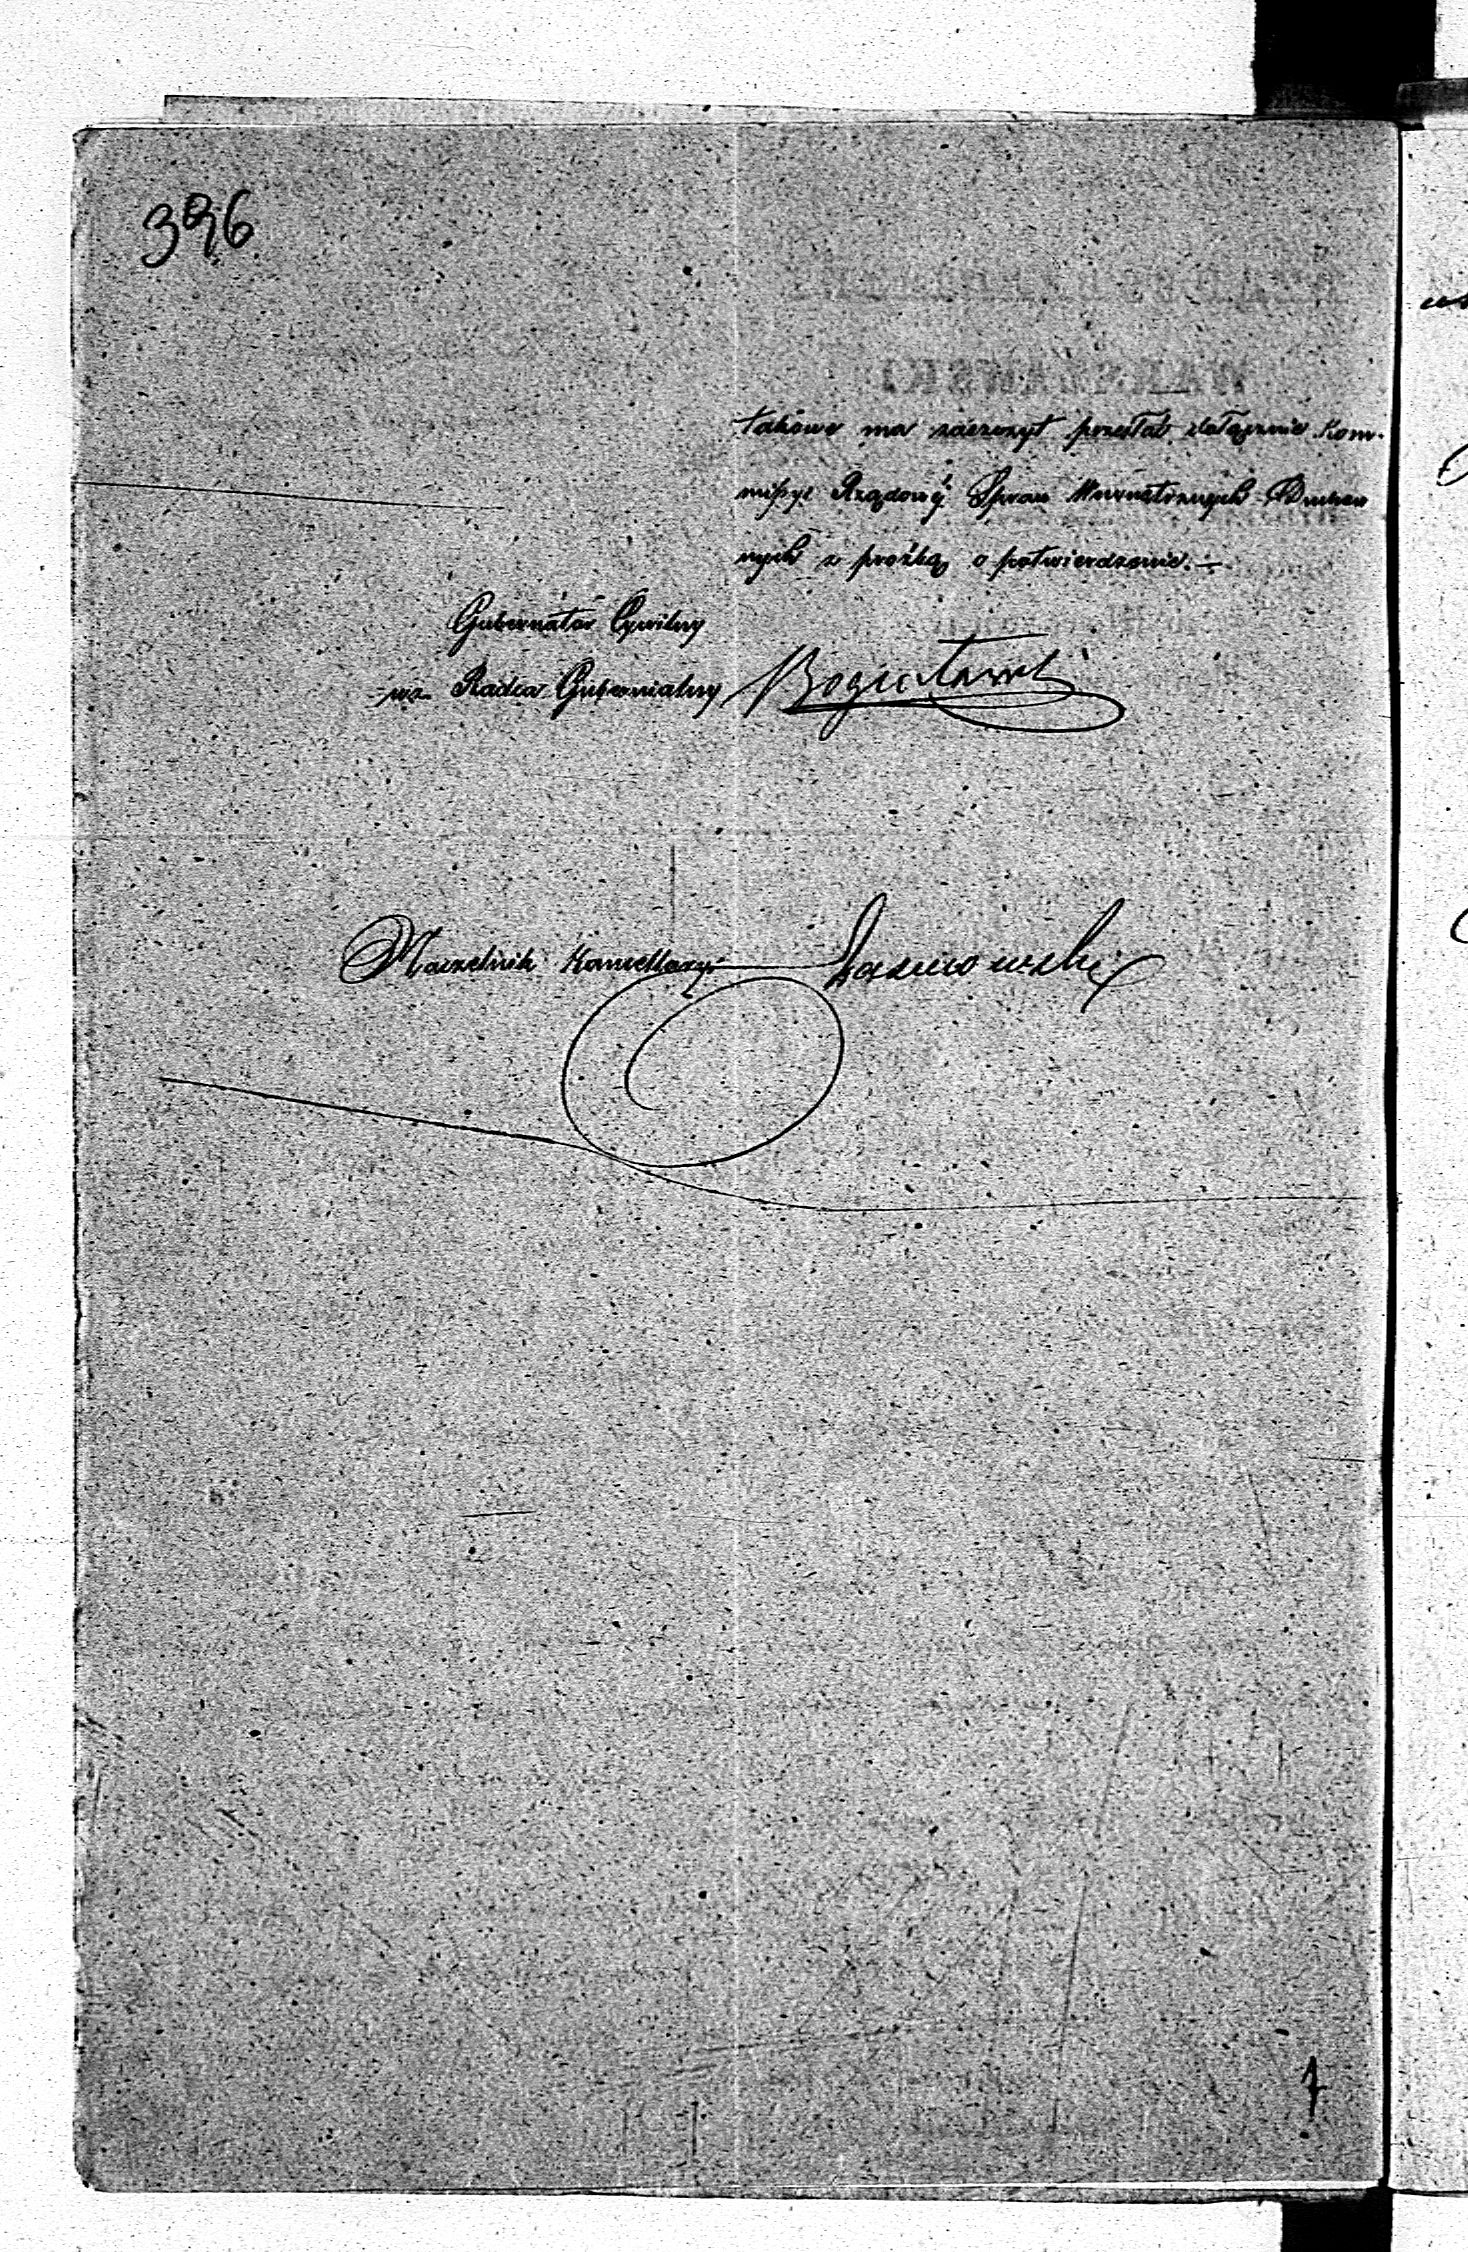 396
takowe ma zaszczyt przesłać dołącznie Kom-
missyi Rządowéj Spraw Wewnętrznych i Duchow
nych z prośbą o potwierdzenie. —
Gubernator Cywilny
wz. Radca Gubernialny Bogusławski
Naczelnik Kancellaryi